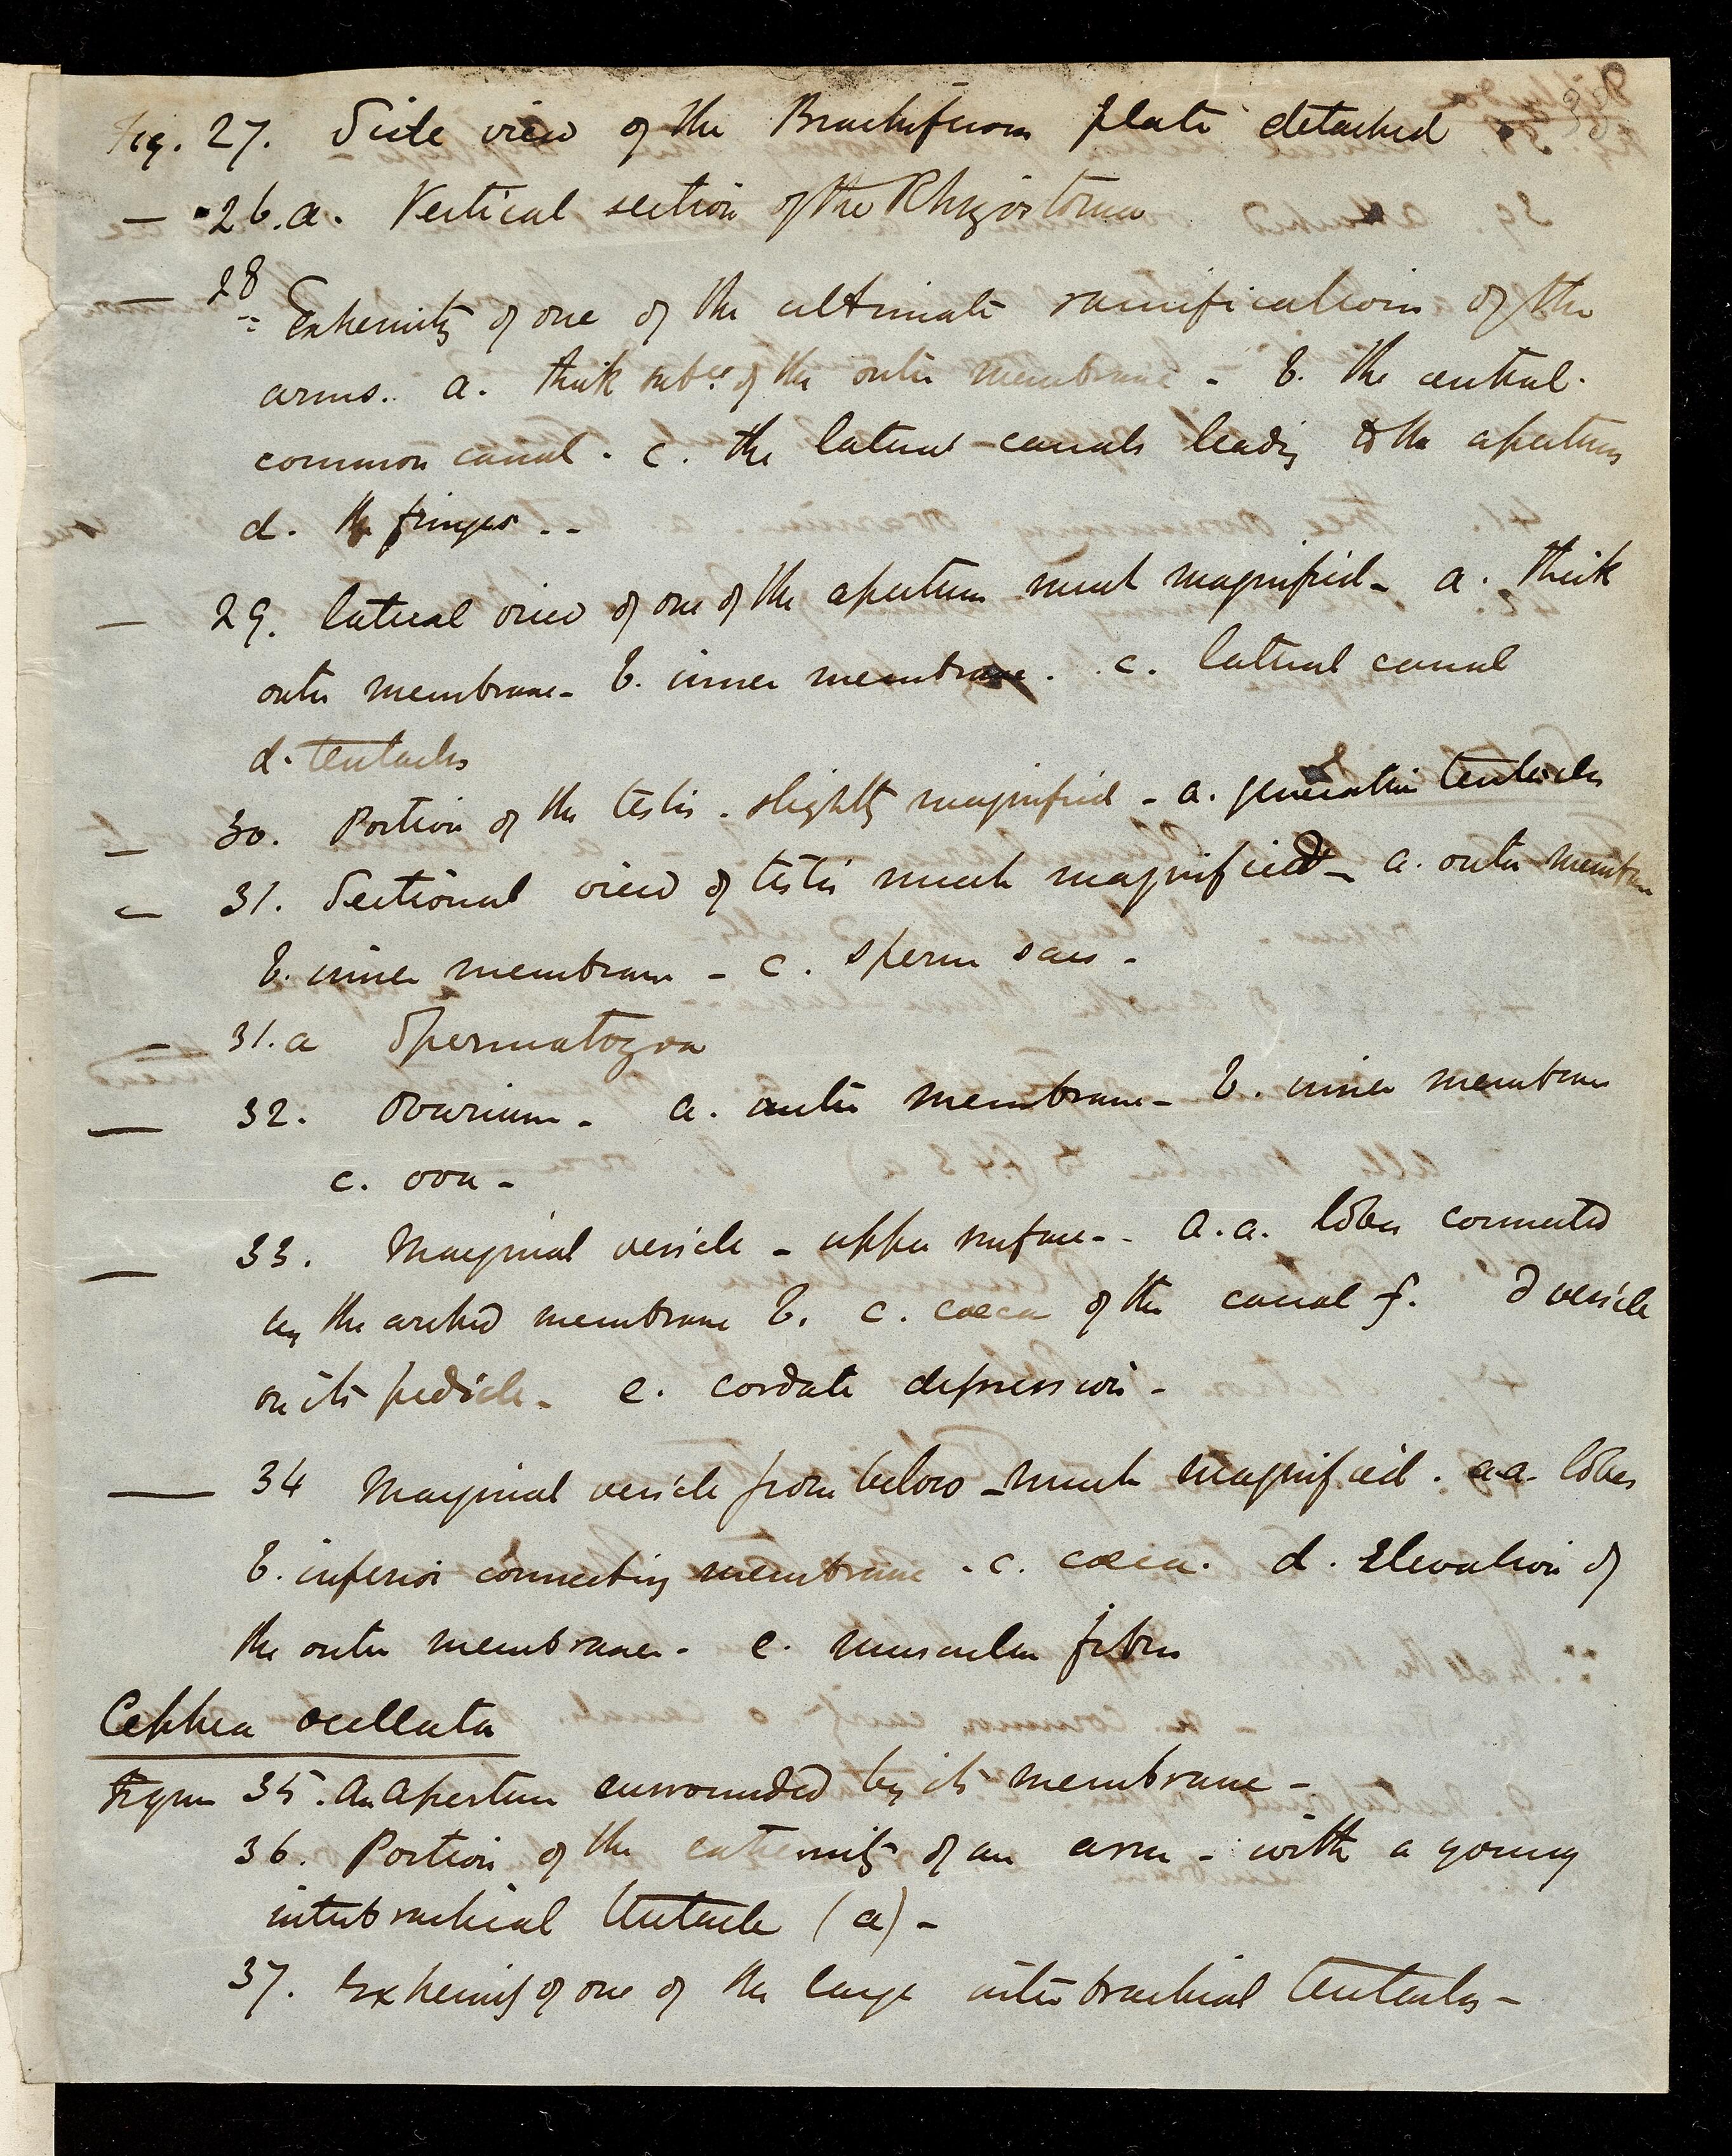 Fig. 27. Side view of the Brachiferous plate detached
— 26.a. Vertical section of the Rhizostoma
— 28 Extremity of one of the ultimate ramifications of the
arms. a. thick subce. of the outer membrane - b. the central
common canal. c. the lateral canals leading to the apertures
d. the fringes --
— 29. lateral view of one of the apertures much magnified - a. thick
outer membrane - b. inner membrane. c. lateral canal
d. tentacles
— 30. Portion of the testis. slightly magnified - a. generative tentacles
— 31. Sectional view of testis much magnified - a. outer membrane
b. inner membrane - c. sperm sacs -
— 31.a Spermatozoa
— 32. Ovarium - a. outer membrane - b. inner membrane
c. ova -
— 33. Marginal vesicle - upper surface - a.a. lobes connected
by the arched membrane b. c. caeca of the canal f. d vesicle
on its pedicle - e. cordate depression -
— 34 Marginal vesicle from below - much magnified. a.a. lobes
b. inferior connecting membrane - c. caeca. d. Elevation of
the outer membrane - e. muscular fibres
Cephea ocellata
Figure 35. An aperture surrounded by its membrane -
36. Portion of the extremity of an arm - with a young
interbrachial tentacle (a) -
37. Extremity of one of the large interbrachial tentacles -